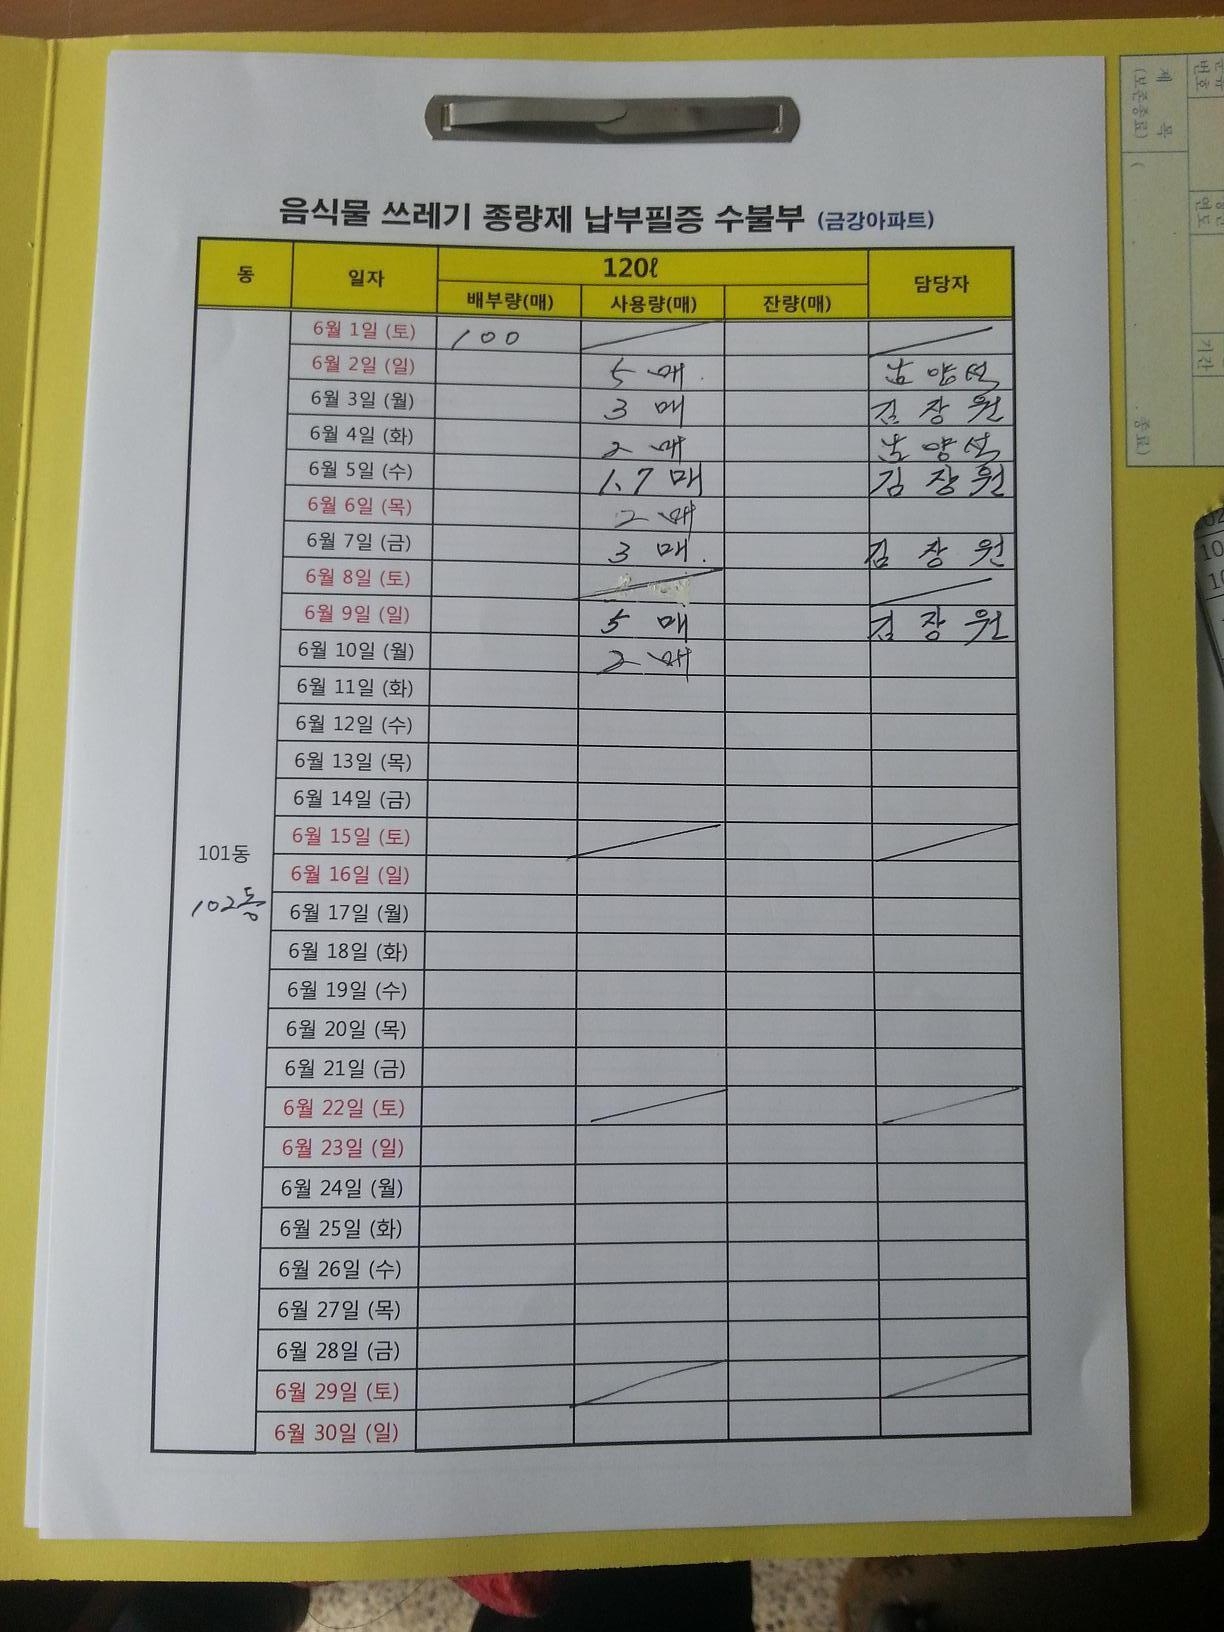 음식물 쓰레기 종량제 납부필증 수불부 (금강아파트)
동 일자 120ℓ 담당자
배부량(매) 사용량(매) 잔량(매)
6월 1일 (토) 100
6월 2일 (일) 5 매. 남양석
6월 3일 (월) 3 매 김장원
6월 4일 (화) 2 매 남양석
6월 5일 (수) 1.7 매 김장원
6월 6일 (목) 2 매
6월 7일 (금) 3 매. 김장원
6월 8일 (토)
6월 9일 (일) 5 매 김장원
6월 10일 (월) 2 매
6월 11일 (화)
6월 12일 (수)
6월 13일 (목)
6월 14일 (금)
6월 15일 (토)
101동
6월 16일 (일)
102동
6월 17일 (월)
6월 18일 (화)
6월 19일 (수)
6월 20일 (목)
6월 21일 (금)
6월 22일 (토)
6월 23일 (일)
6월 24일 (월)
6월 25일 (화)
6월 26일 (수)
6월 27일 (목)
6월 28일 (금)
6월 29일 (토)
6월 30일 (일)
제 목
(보존종료)
번호
연도
기간
종료)